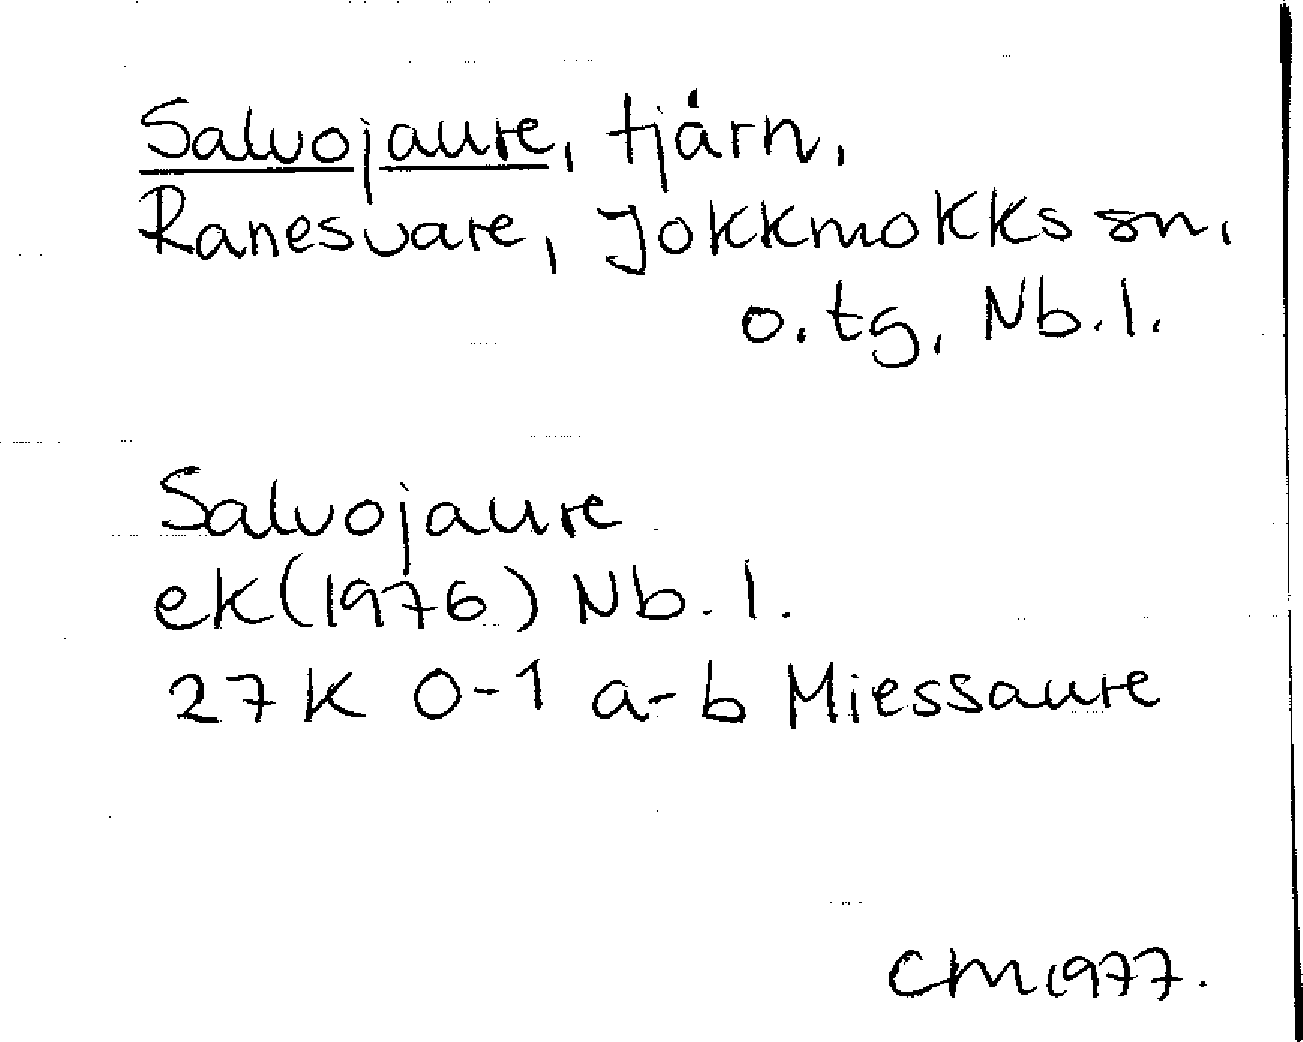 Salvojaure, tjärn,
Ranesvare, Jokkmokks sn,
o. tg, Nb. l.
Salvojaure
ek (1976) Nb. l.
27 K 0-1 a-b Miessaure
CM 1977.